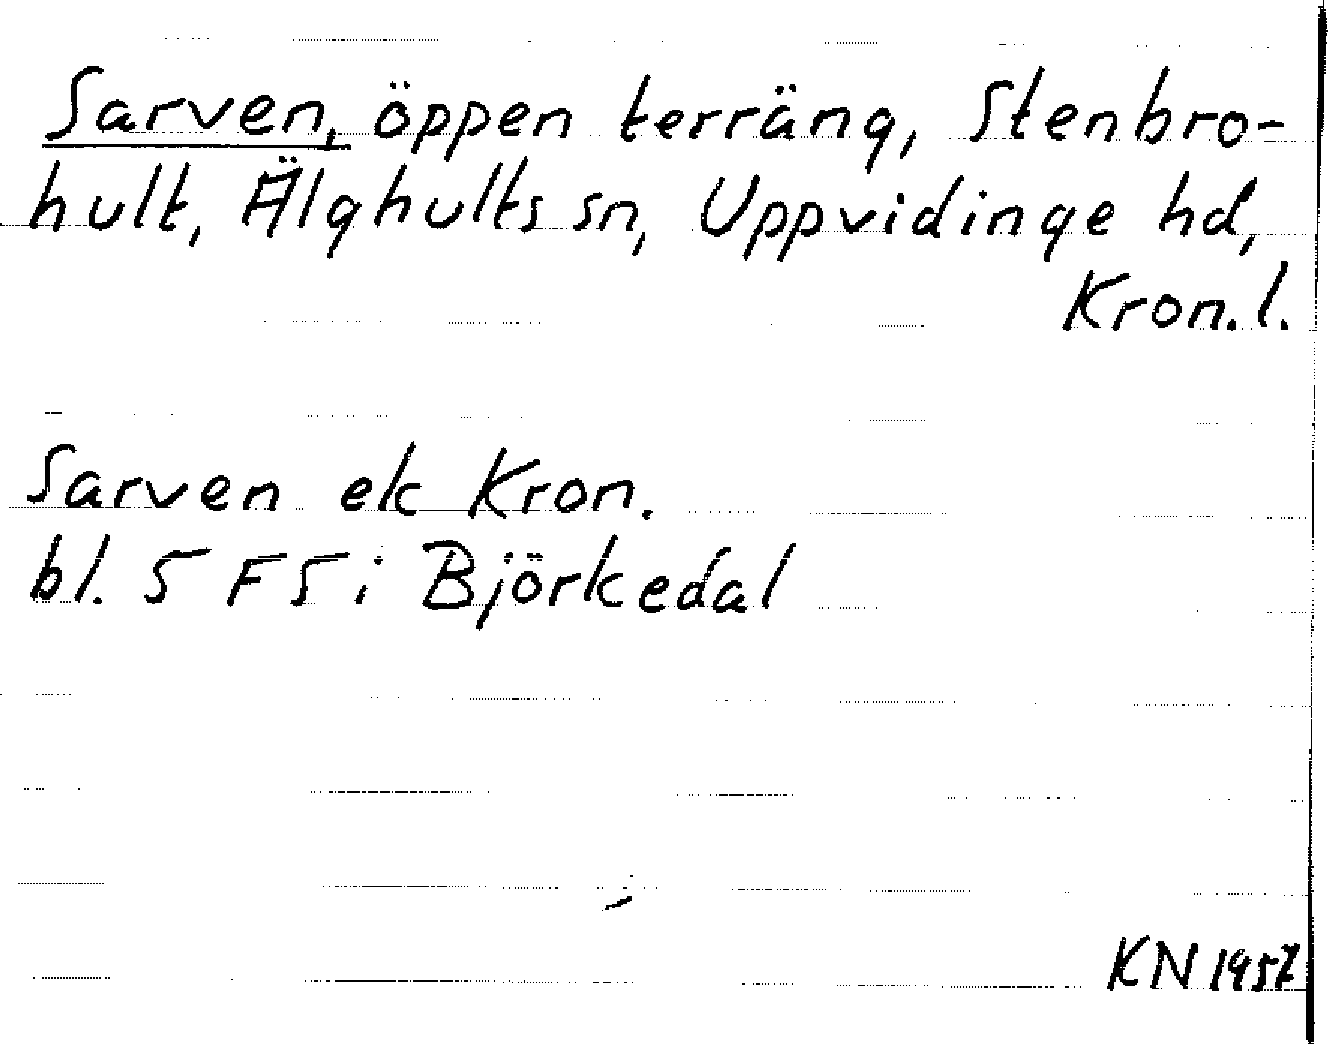 Sarven, öppen terräng, Stenbro-
hult, Älghults sn, Uppvidinge hd,
Kron. l.
Sarven ek Kron.
bl. 5 F 5 i Björkedal
KN 1957